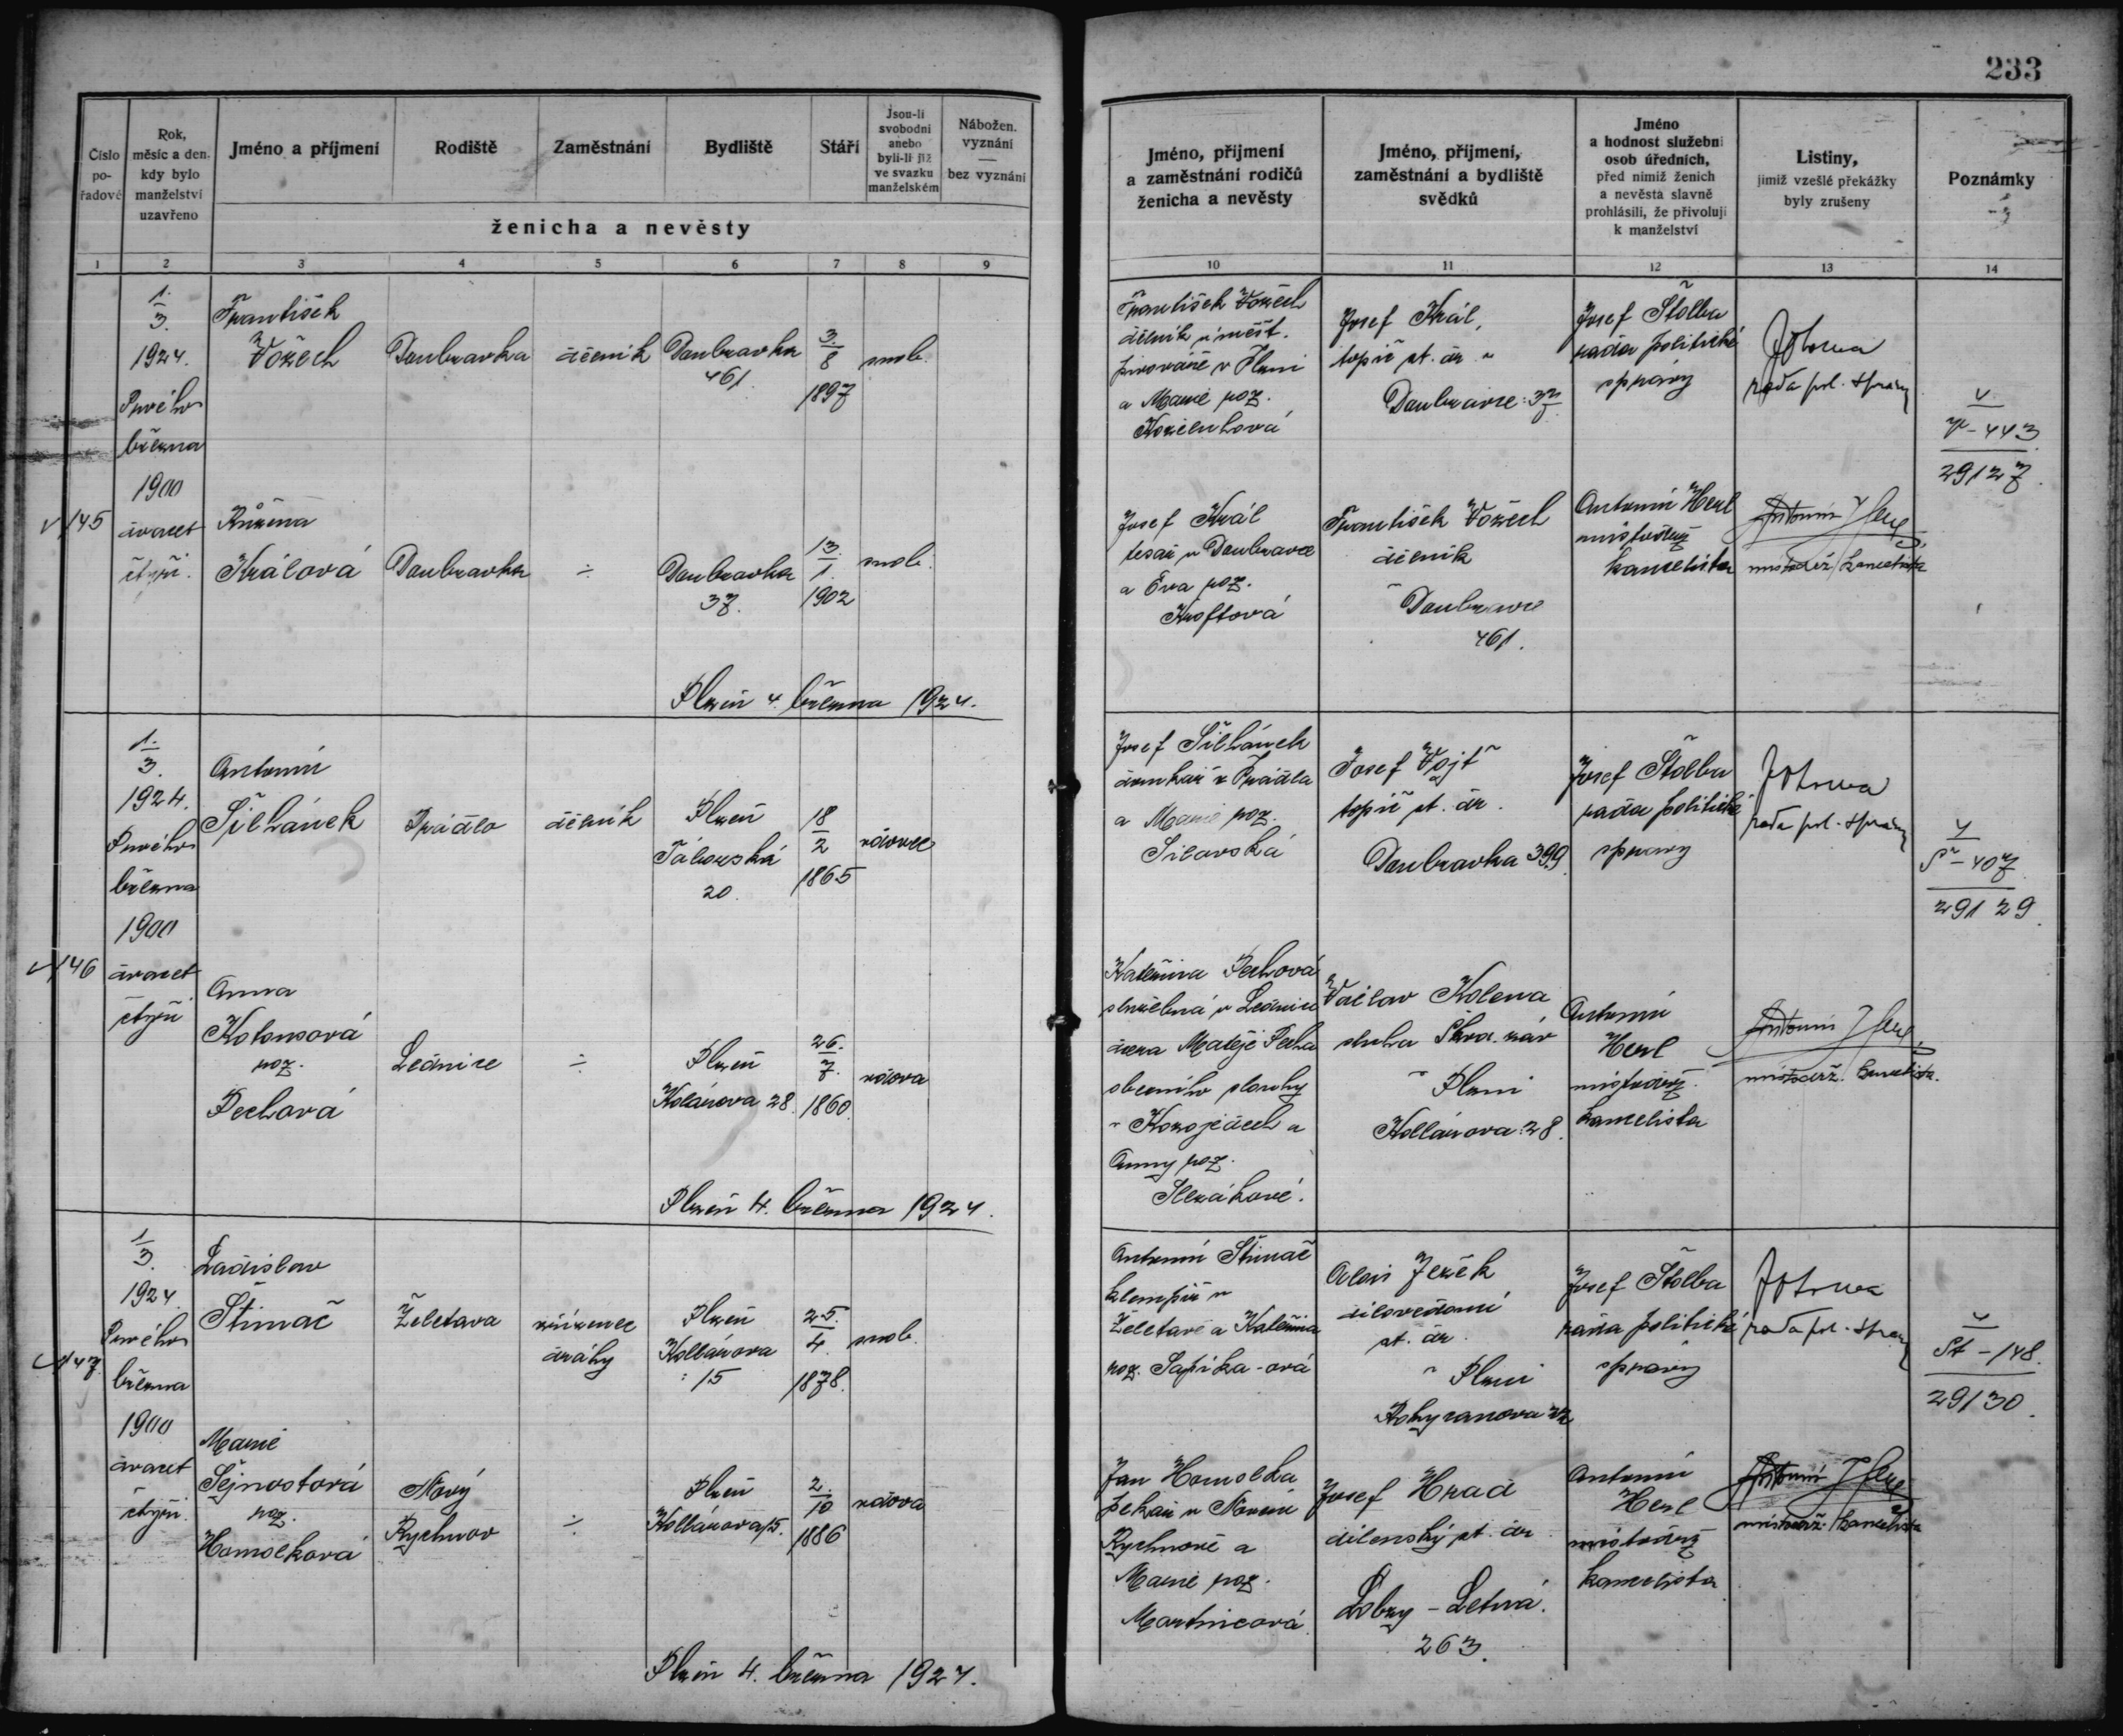 233
Číslo
po-
řadové
Rok,
měsíc a den,
kdy bylo
manželství
uzavřeno
Jméno a příjmení
Rodiště
Zaměstnání
Bydliště
Stáří
Jsou-li
svobodni
anebo
byli-li již
ve svazku
manželském
Nábožen.
vyznání
—
bez vyznání
ženicha a nevěsty
Jméno, příjmení
a zaměstnání rodičů
ženicha a nevěsty
Jméno, příjmení,
zaměstnání a bydliště
svědků
Jméno
a hodnost služební
osob úředních,
před nimiž ženich
a nevěsta slavně
prohlásili, že přivolují
k manželství
Listiny,
jimiž vzešlé překážky
byly zrušeny
Poznámky
1 2 3 4 5 6 7 8 9 10 11 12 13 14
145
1.
3.
1924.
Prvého
března
1900
dvacet
čtyři.
František
Vožech
Doubravka
dělník
Doubravka
461.
3.
8
1897
svob.
František Vožech
dělník v měšt.
pivováře v Plzni
a Marie roz.
Koželuhová
Josef Král,
topič st. dr. v
Doubravce: 37
Josef Štolba
rada politické
správy
rada pol. správy
V
443
29127
Růžena
Králová
Doubravka
÷
Doubravka
37.
13.
1.
1902
svob.
Josef Král
tesař v Doubravce
a Eva roz.
Kroftová
František Vožech
dělník
v Doubravce
461.
Antonín Herl
místodrž.
kancelista
Antonín Herl
místodrž. kancelista
Plzeň 4. března 1924.
146
1.
3.
1924.
Prvého
března
1900
dvacet
čtyři
Antonín
Šilhánek
Prádlo
dělník
Plzeň
Táborská
20.
18
2
1865
vdovec
Josef Šilhánek
domkář v Prádle
a Marie roz.
Silovská
Josef Vojt
topič st. dr.
Doubravka 399.
Josef Štolba
rada politické
správy
rada pol. správy
407
29129.
Anna
Kotousová
roz.
Pechová
Lednice
÷
Plzeň
Kolárova 28.
26.
7.
1860.
vdova
Kateřina Pechová
služebná v Lednici
dcera Matěje Pecha
obecního slouhy
v Kozojedech a
Anny roz.
Slezákové.
Václav Kolena
sluha Škod. záv
v Plzni
Kollárova: 28.
Antonín
Herl
místodrž.
kancelista
Antonín Herl
místodrž. kancelista.
Plzeň 4. března 1924.
147
1
3.
1924.
Prvého
března
1900
dvacet
čtyři.
Ladislav
Štinač
Želetava
zřízenec
dráhy
Plzeň
Kollárova
: 15
25.
4.
1878.
svob.
Antonín Štinač
klempíř v
Želetavě a Kateřina
roz. Sapíka-ová
Alois Ježek
dílovedoucí
st. dr.
v Plzni
Rokycanova
Josef Štolba
rada politické
správy
rada pol. správy
St - 148.
29130.
Marie
Šejnostová
roz.
Homolková
Nový
Rychnov
÷
Plzeň
Kollárova 15.
2.
10
1886
vdova
Jan Homolka
pekař v Novém
Rychnově a
Marie roz.
Martnicová
Josef Hrad
dílenský st. dr.
Lobzy - Letná.
263.
Antonín
Herl
místodrž
kancelista
Antonín Herl
místodrž. kancelista
Plzeň 4. března 1924.